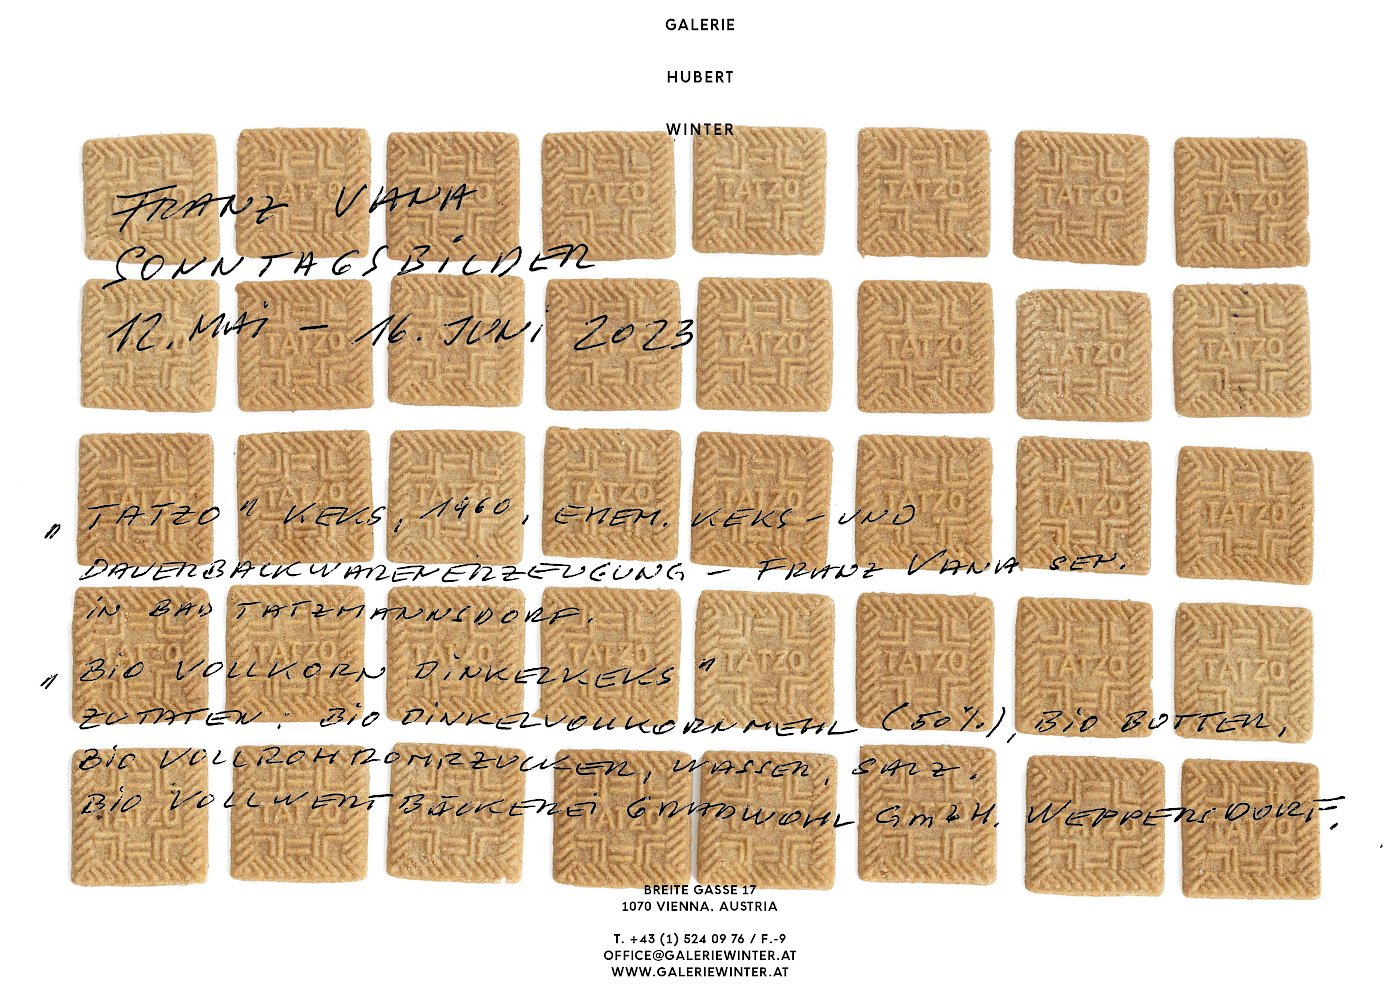 GALERIE
HUBERT
WINTER
FRANZ VANA
SONNTAGSBILDER
12. MAI – 16. JUNI 2023
„TATZO" KEKS, 1960, EHEM. KEKS- UND
DAUERBACKWARENERZEUGUNG – FRANZ VANA SEN.
IN BAD TATZMANNSDORF.
„BIO VOLLKORN DINKELKEKS"
ZUTATEN: BIO DINKELVOLLKORNMEHL (50%), BIO BUTTER,
BIO VOLLROHRROHRZUCKER, WASSER, SALZ.
BIO VOLLWERTBÄCKEREI GRADWOHL GmbH. WEPPERSDORF.
TATZO TATZO TATZO TATZO TATZO TATZO TATZO TATZO
TATZO TATZO TATZO TATZO TATZO TATZO TATZO TATZO
TATZO TATZO TATZO TATZO TATZO TATZO TATZO TATZO
TATZO TATZO TATZO TATZO TATZO TATZO TATZO TATZO
TATZO TATZO TATZO TATZO TATZO TATZO TATZO TATZO
BREITE GASSE 17
1070 VIENNA, AUSTRIA
T. +43 (1) 524 09 76 / F.-9
OFFICE@GALERIEWINTER.AT
WWW.GALERIEWINTER.AT